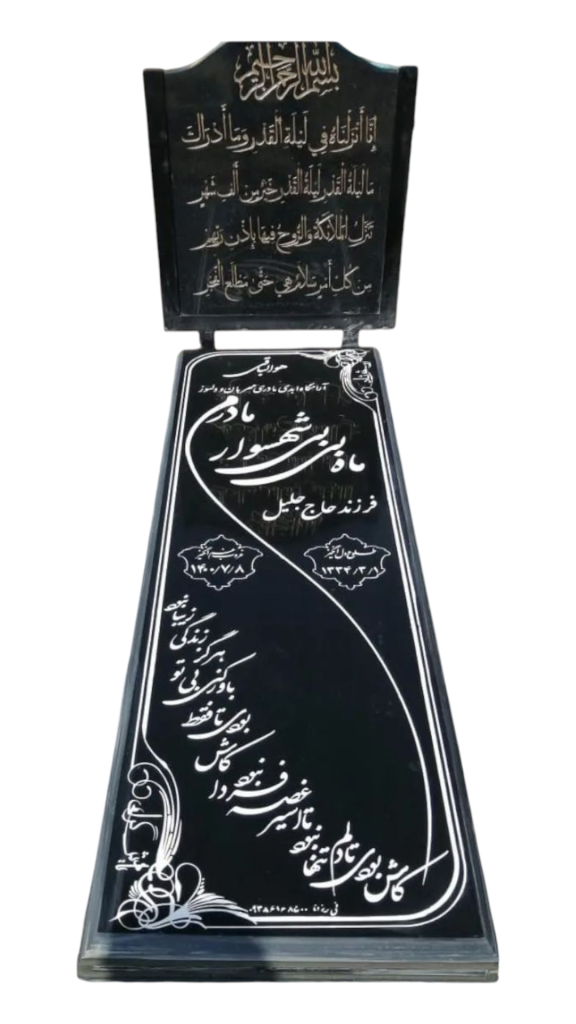 بسم الله الرحمن الرحيم
إنا أنزلناه في ليلة القدر وما أدراك
ما ليلة القدر ليلة القدر خير من ألف شهر
تنزل الملائكة والروح فيها بإذن ربهم
من كل أمر سلام هي حتى مطلع الفجر
هوالباقی
آرامگاه ابدی مادری مهربان و دلسوز
مادرم
ماه بی بی شهسوار
فرزند حاج جلیل
طلوع دل انگیز
۱۳۳۴/۳/۱
غروب غم انگیز
۱۴۰۰/۷/۸
کاش بودی تا دلم تنها نبود
تا اسیر غصه فردا نبود
کاش بودی تا فقط
باور کنی بی تو
هرگز زندگی
زیبا نبود